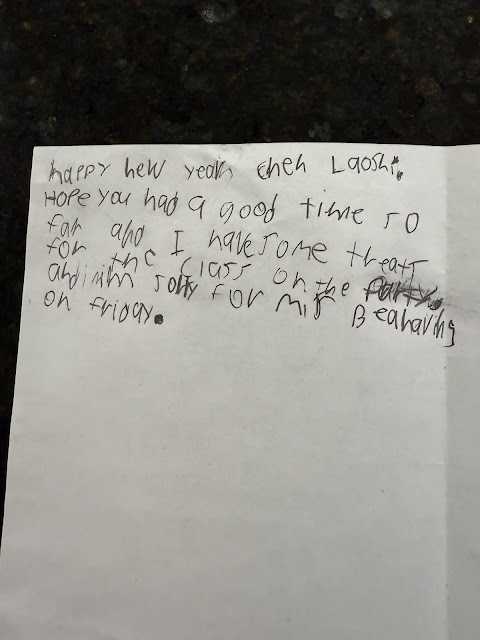 happy new year chen Laoshi.
Hope you had a good time so
far and I have some treats
for the class on the party.
and im sorry for mis Beahaving
on friday.